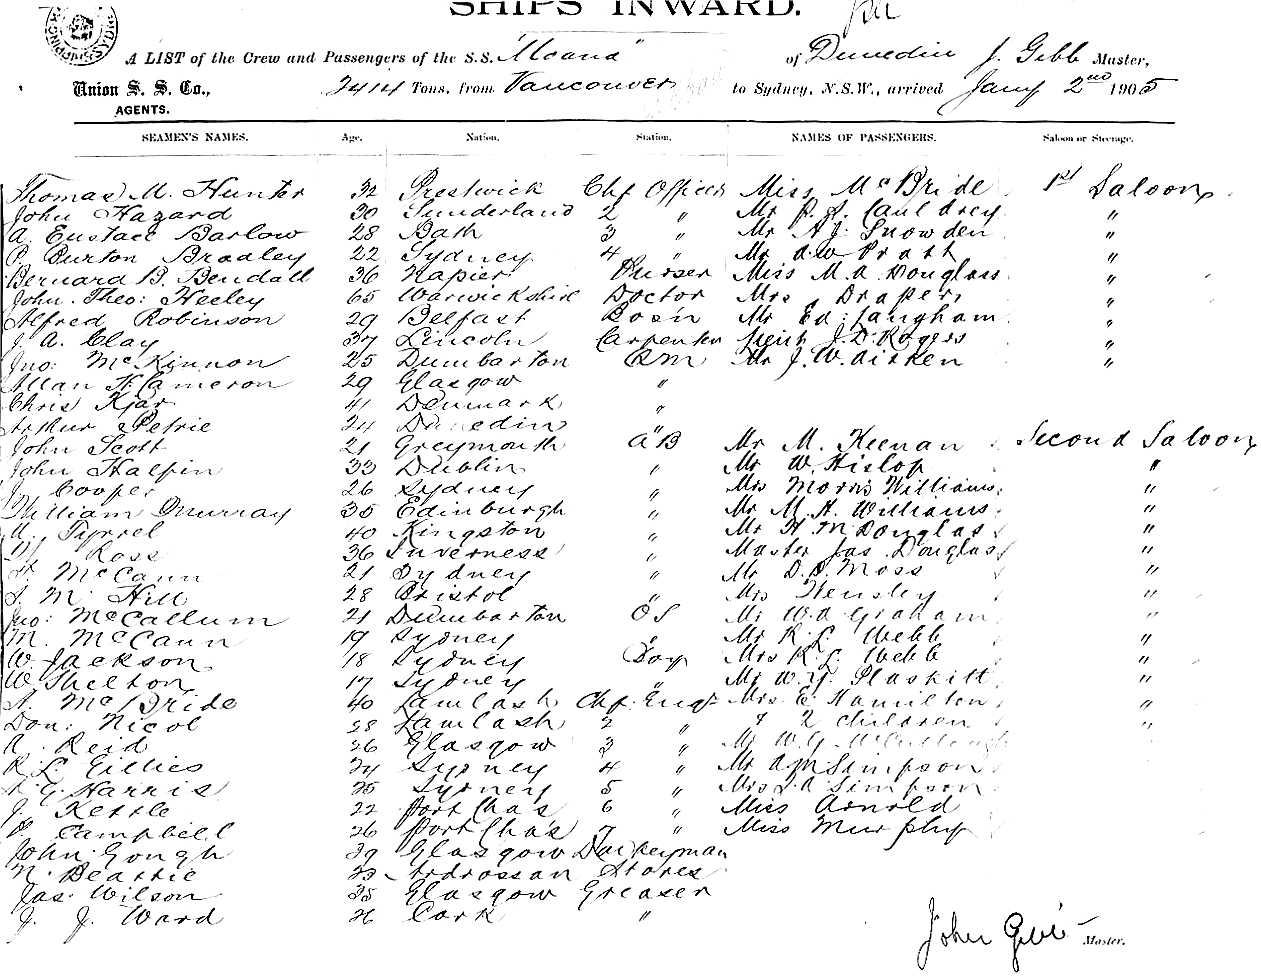 SHIPS INWARD.
A LIST of the Crew and Passengers of the S.S. "Moana" of Dunedin J. Gibb Master,
Union S. S. Co., 2414 Tons, from Vancouver to Sydney, N.S.W., arrived Jany 2nd 1905
AGENTS.
SEAMEN'S NAMES. Age. Nation. Station. NAMES OF PASSENGERS. Saloon or Steerage.
Thomas M. Hunter 32 Prestwick Chf Officer Miss McBride 1st Saloon
John Hazard 30 Sunderland 2 " Mr Cauldrey "
A Eustace Barlow 28 Bath 3 " Mr A.J. Snowden "
P. Burton Bradley 22 Sydney 4 " Mr A.W. Pratt "
Bernard B. Bendall 36 Napier Purser Miss M.A. Douglass "
John Theo: Heeley 65 Warwickshire Doctor Mrs Draper "
Alfred Robinson 29 Belfast Bosn Mr Ed: Langham "
J. A. Clay 37 Lincoln Carpenter J.D. Rogers "
Jno: McKinnon 25 Dumbarton Mr J.W. Aitken "
Allan H. Cameron 29 Glasgow "
Chris Kjar 41 Denmark "
Arthur Petrie 24 Dunedin "
John Scott 21 Greymouth AB Mr M. Keenan Second Saloon
John Halpin 33 Dublin " Mr W. Hislop "
J. Cooper 26 Sydney " Mrs Morris Williams "
William Murray 35 Edinburgh " Mr M.H. Williams "
Tyrrel 40 Kingston " Mr H. M Douglas "
Ross 36 Inverness " Master Jas. Douglas "
McCann 21 Sydney " Mr D.D. Moss "
M. Hill 28 Bristol " Mrs Hensley "
Jno: McCallum 21 Dumbarton OS Mr W.A Graham "
M. McCann 19 Sydney " Mr R.L. Webb "
W. Jackson 18 Sydney Boy Mrs R.L. Webb "
W Shelton 17 Sydney " Mr W.J. Plaskitt "
McBride 40 Lamlash Chf. Engr Mrs E. Hamilton "
Don: Nicol 28 Lamlash 2 " & 2 children "
A. Reid 26 Glasgow 3 " Mr W.G. McCullough
R.L. Gillies 24 Sydney 4 " Mr A.M Simpson
Harris 25 Sydney 5 " Mrs Simpson
J. Kettle 22 Port Cha's 6 " Miss Arnold
Campbell 26 Port Cha's 7 " Miss Murphy
John Gough 29 Glasgow Donkeyman
N. Beattie 23 Ardrossan Stores
Jas: Wilson 35 Glasgow Greaser
J. J. Ward 26 Cork "
John Gibb Master.